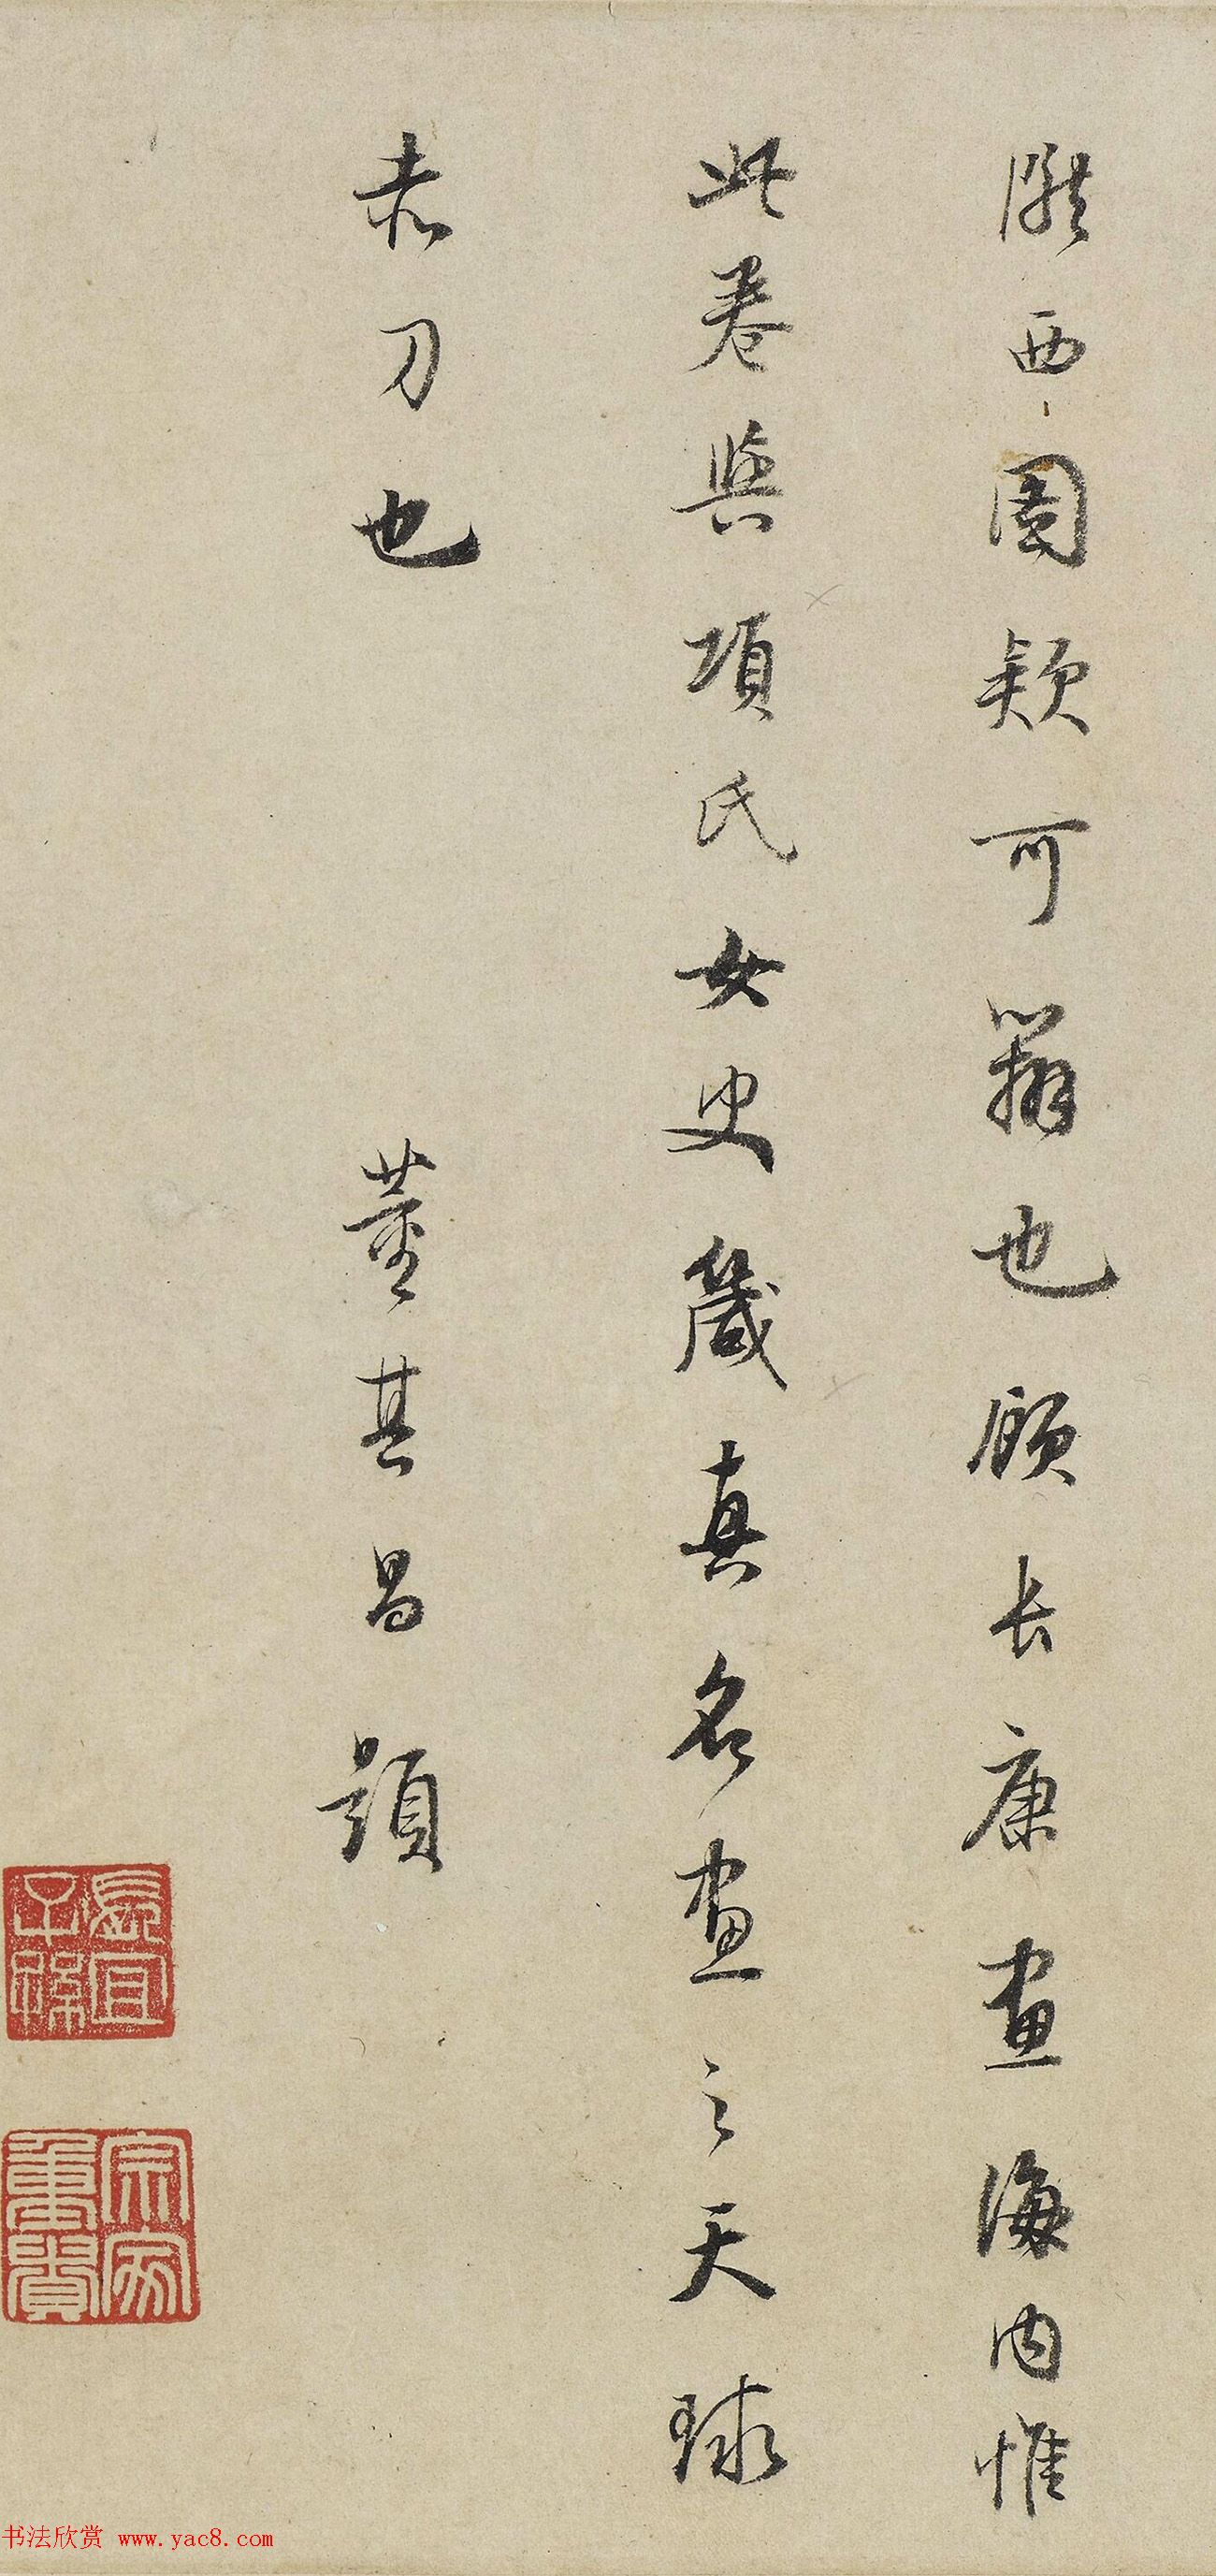 隴西圖款可辨也顧長康畫海內惟
此卷與項氏女史箴真名畫之天球
赤刀也
董其昌題
長宜子孫
宗家重寶
书法欣赏 www.yac8.com